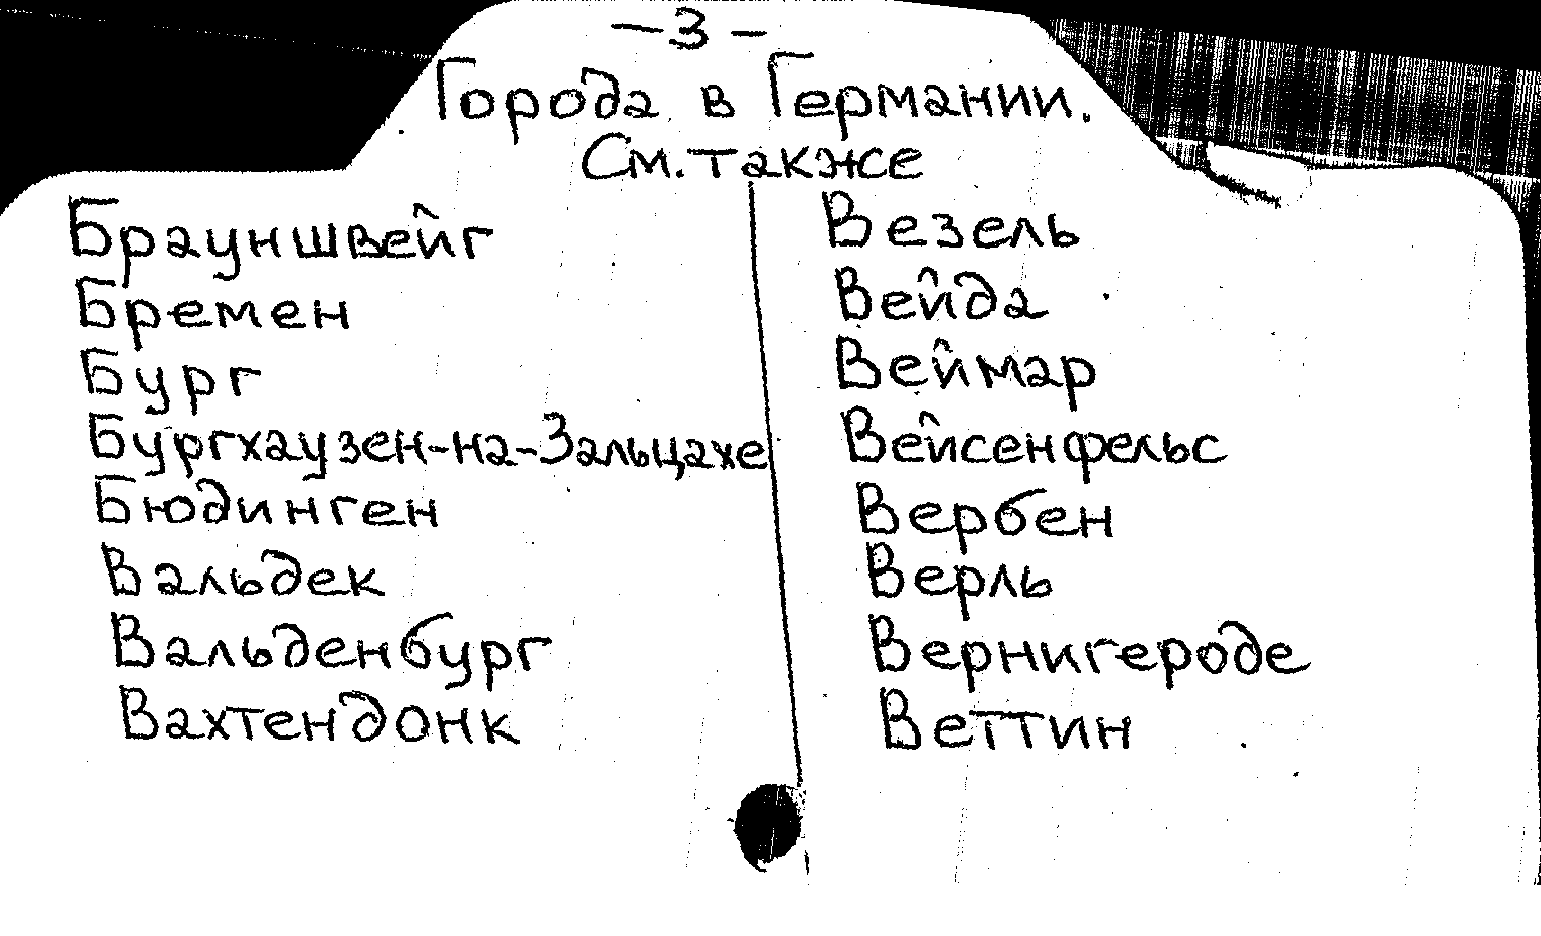 -3-
Города в Германии.
См. также
Брауншвейг
Бремен
Бург
Бургхаузен-на-Зальцахе
Бюдинген
Вальдек
Вальденбург
Вахтендонк
Везель
Вейда
Веймар
Вейсенфельс
Вербен
Верль
Вернигероде
Веттин